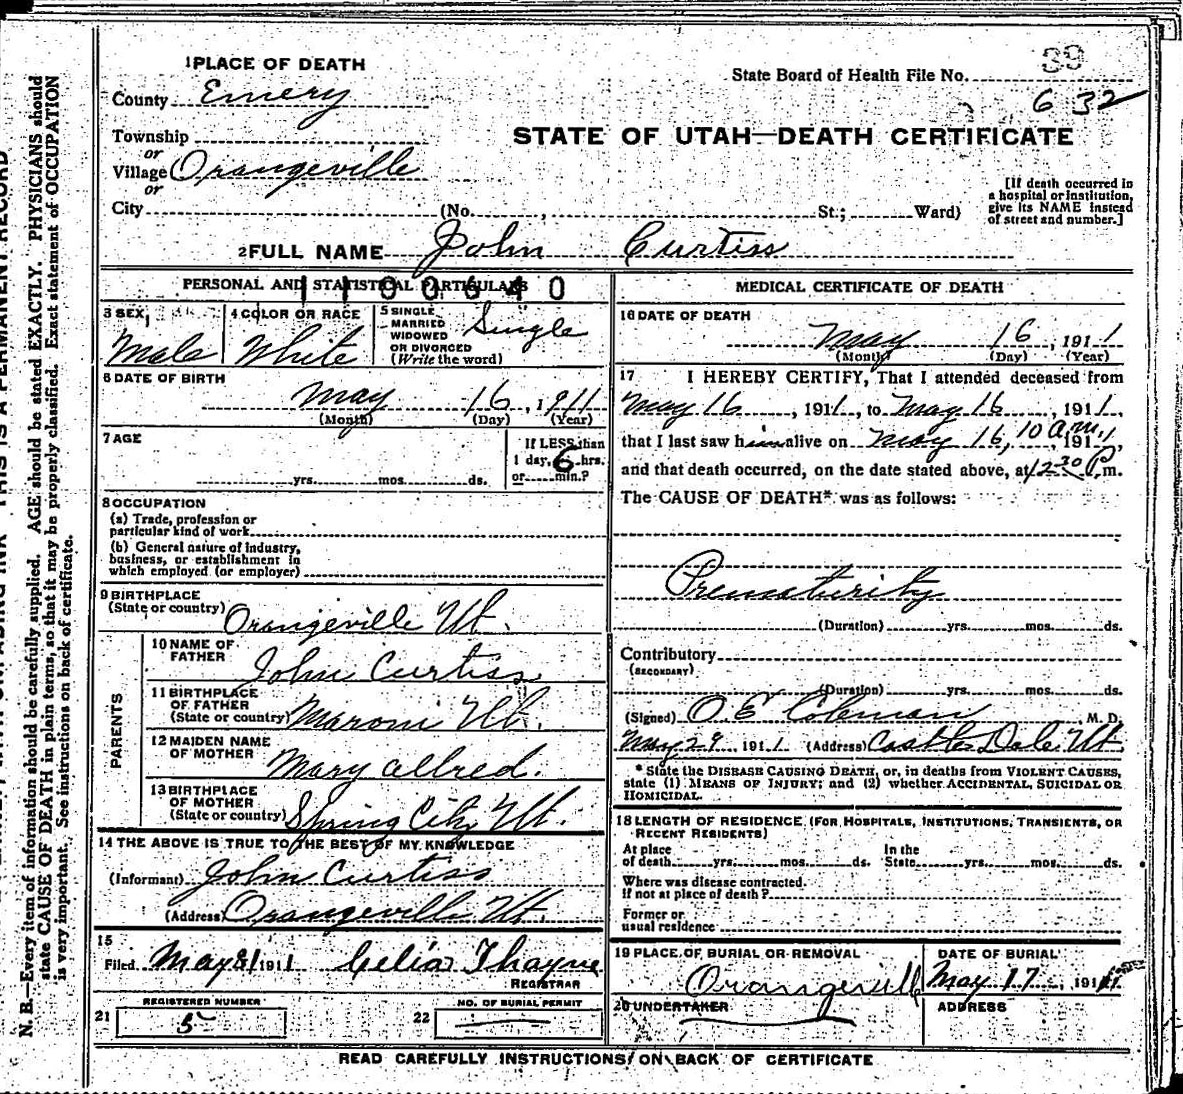 1 PLACE OF DEATH
County Emery
Township
or
Village Orangeville
or
City (No. , St.; Ward)
State Board of Health File No. 39
632
STATE OF UTAH—DEATH CERTIFICATE
[If death occurred in
a hospital or institution,
give its NAME instead
of street and number.]
2 FULL NAME John Curtiss
PERSONAL AND STATISTICAL PARTICULARS
1100640
3 SEX
Male
4 COLOR OR RACE
White
5 SINGLE
MARRIED
WIDOWED
OR DIVORCED
(Write the word)
Single
6 DATE OF BIRTH
May 16, 1911
(Month) (Day) (Year)
7 AGE
yrs. mos. ds.
If LESS than
1 day, 6 hrs.
or min.?
8 OCCUPATION
(a) Trade, profession or
particular kind of work
(b) General nature of industry,
business, or establishment in
which employed (or employer)
9 BIRTHPLACE
(State or country) Orangeville Ut.
PARENTS
10 NAME OF
FATHER John Curtiss
11 BIRTHPLACE
OF FATHER
(State or country) Maroni Ut.
12 MAIDEN NAME
OF MOTHER Mary Allred.
13 BIRTHPLACE
OF MOTHER
(State or country) Spring City Ut.
14 THE ABOVE IS TRUE TO THE BEST OF MY KNOWLEDGE
(Informant) John Curtiss
(Address) Orangeville Ut.
15
Filed May 31 1911 Celia Thayne
REGISTRAR
REGISTERED NUMBER
21 5
NO. OF BURIAL PERMIT
22
MEDICAL CERTIFICATE OF DEATH
16 DATE OF DEATH
May 16, 1911
(Month) (Day) (Year)
17 I HEREBY CERTIFY, That I attended deceased from
May 16, 1911, to May 16, 1911,
that I last saw him alive on May 16, 10 a.m. 1911,
and that death occurred, on the date stated above, at 12 30 P. m.
The CAUSE OF DEATH* was as follows:
Prematurity
(Duration) yrs. mos. ds.
Contributory
(SECONDARY)
(Duration) yrs. mos. ds.
(Signed) O.E. Coleman M. D.
May 29 1911 (Address) Castle Dale Ut.
* State the DISEASE CAUSING DEATH, or, in deaths from VIOLENT CAUSES,
state (1) MEANS OF INJURY; and (2) whether ACCIDENTAL, SUICIDAL OR
HOMICIDAL.
18 LENGTH OF RESIDENCE (FOR HOSPITALS, INSTITUTIONS, TRANSIENTS, OR
RECENT RESIDENTS)
At place In the
of death yrs. mos. ds. State yrs. mos. ds.
Where was disease contracted
if not at place of death?
Former or
usual residence
19 PLACE OF BURIAL OR REMOVAL
Orangeville
DATE OF BURIAL
May 17, 191
20 UNDERTAKER
ADDRESS
READ CAREFULLY INSTRUCTIONS ON BACK OF CERTIFICATE
N. B.—Every item of information should be carefully supplied. AGE should be stated EXACTLY. PHYSICIANS should
state CAUSE OF DEATH in plain terms, so that it may be properly classified. Exact statement of OCCUPATION
is very important. See instructions on back of certificate.
THIS IS A PERMANENT RECORD